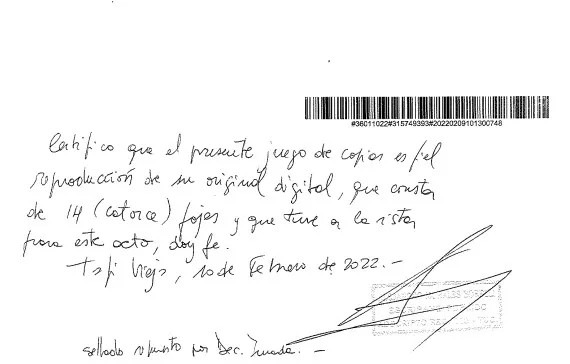 #36011022#315749393#20220209101300748
Certifico que el presente juego de copias es fiel
reproducción de su original digital, que consta
de 14 (catorce) fojas y que tuve a la vista
para este acto, doy fe.
Tafí Viejo, 10 de Febrero de 2022.-
sellado repuesto por Dec. Jurada. -